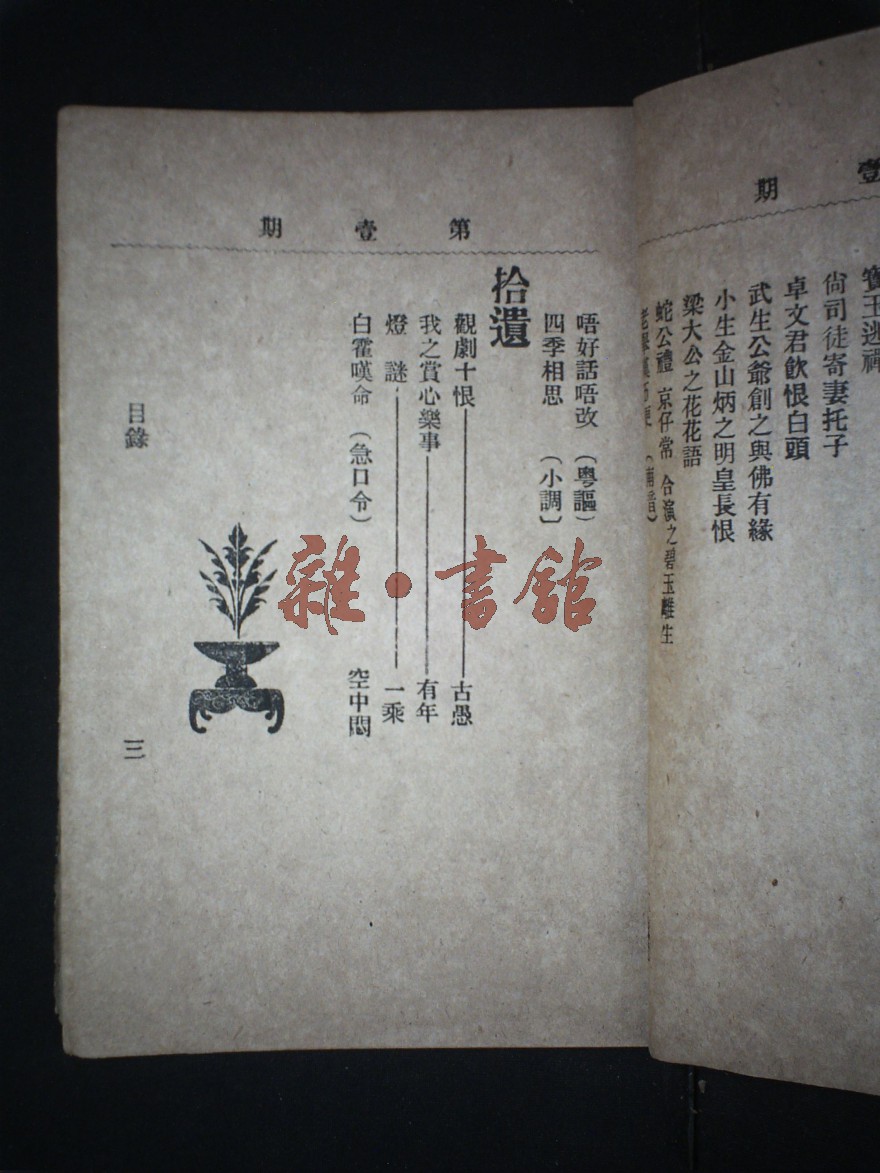 壹 期
寶玉逃禪
尙司徒寄妻托子
卓文君飮恨白頭
武生公爺創之與佛有緣
小生金山炳之明皇長恨
梁大公之花花語
蛇公禮 京仔常 合演之碧玉離生
第 壹 期
唔好話唔改 (粤謳)
四季相思 (小調)
拾遺
觀劇十恨 古愚
我之賞心樂事 有年
燈謎 一乘
白霍嘆命 (急口令) 空中悶
目錄 三
雜·書舘